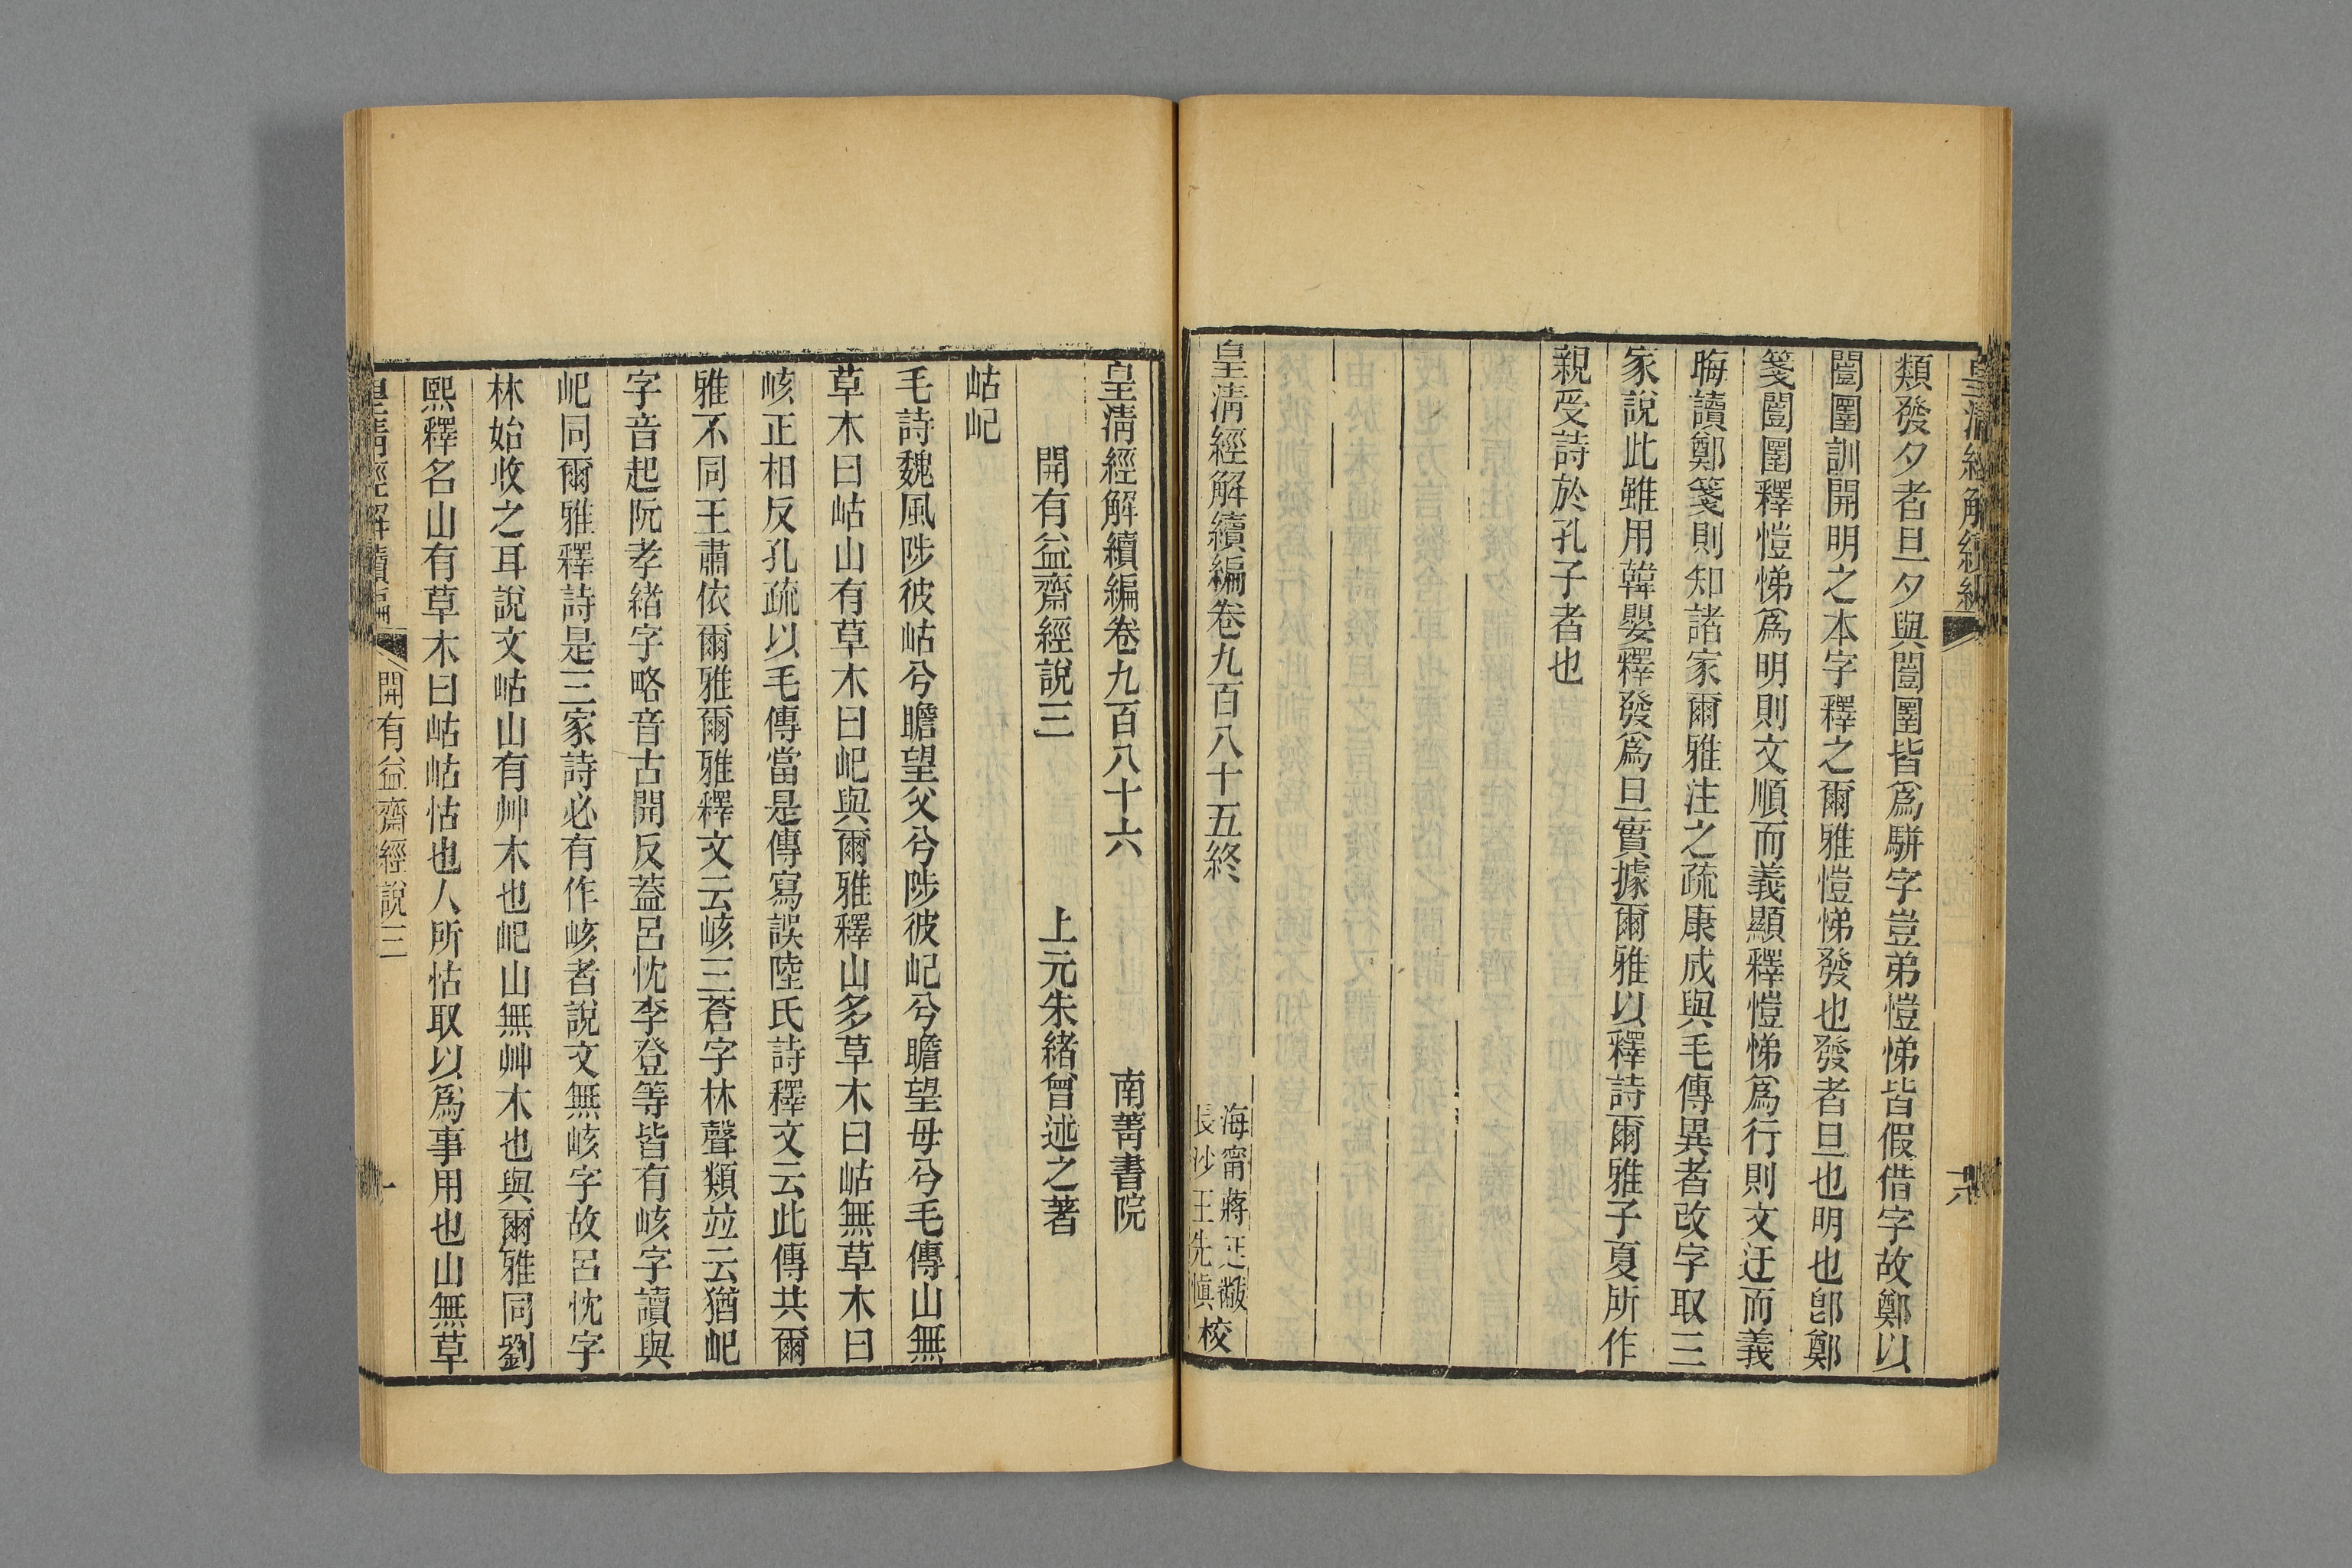 皇清經解續編
類發夕者旦夕與闓圛皆爲駢字豈弟愷悌皆假借字故鄭以
闓圛訓開明之本字釋之爾雅愷悌發也發者旦也明也卽鄭
箋闓圛釋愷悌爲明則文順而義顯釋愷悌爲行則文迂而義
晦讀鄭箋則知諸家爾雅注之疏康成與毛傳異者改字取三
家說此雖用韓嬰釋發爲旦實據爾雅以釋詩爾雅子夏所作
親受詩於孔子者也
皇淸經解續編卷九百八十五終
海甯蔣廷黻
長沙王先愼
校
皇淸經解續編卷九百八十六
南菁書院
開有益齋經說三
上元朱緒曾述之著
岵屺
毛詩魏風陟彼岵兮瞻望父兮陟彼屺兮瞻望母兮毛傳山無
草木曰岵山有草木曰屺與爾雅釋山多草木曰岵無草木曰
峐正相反孔疏以毛傳當是傳寫誤陸氏詩釋文云此傳共爾
雅不同王肅依爾雅爾雅釋文云峐三蒼字林聲類竝云猶屺
字音起阮孝緒字略音古開反蓋呂忱李登等皆有峐字讀與
屺同爾雅釋詩是三家詩必有作峐者說文無峐字故呂忱字
林始收之耳說文岵山有艸木也屺山無艸木也與爾雅同劉
熙釋名山有草木曰岵岵怙也人所怙取以爲事用也山無草
皇清經解續編
開有益齋經說三
一